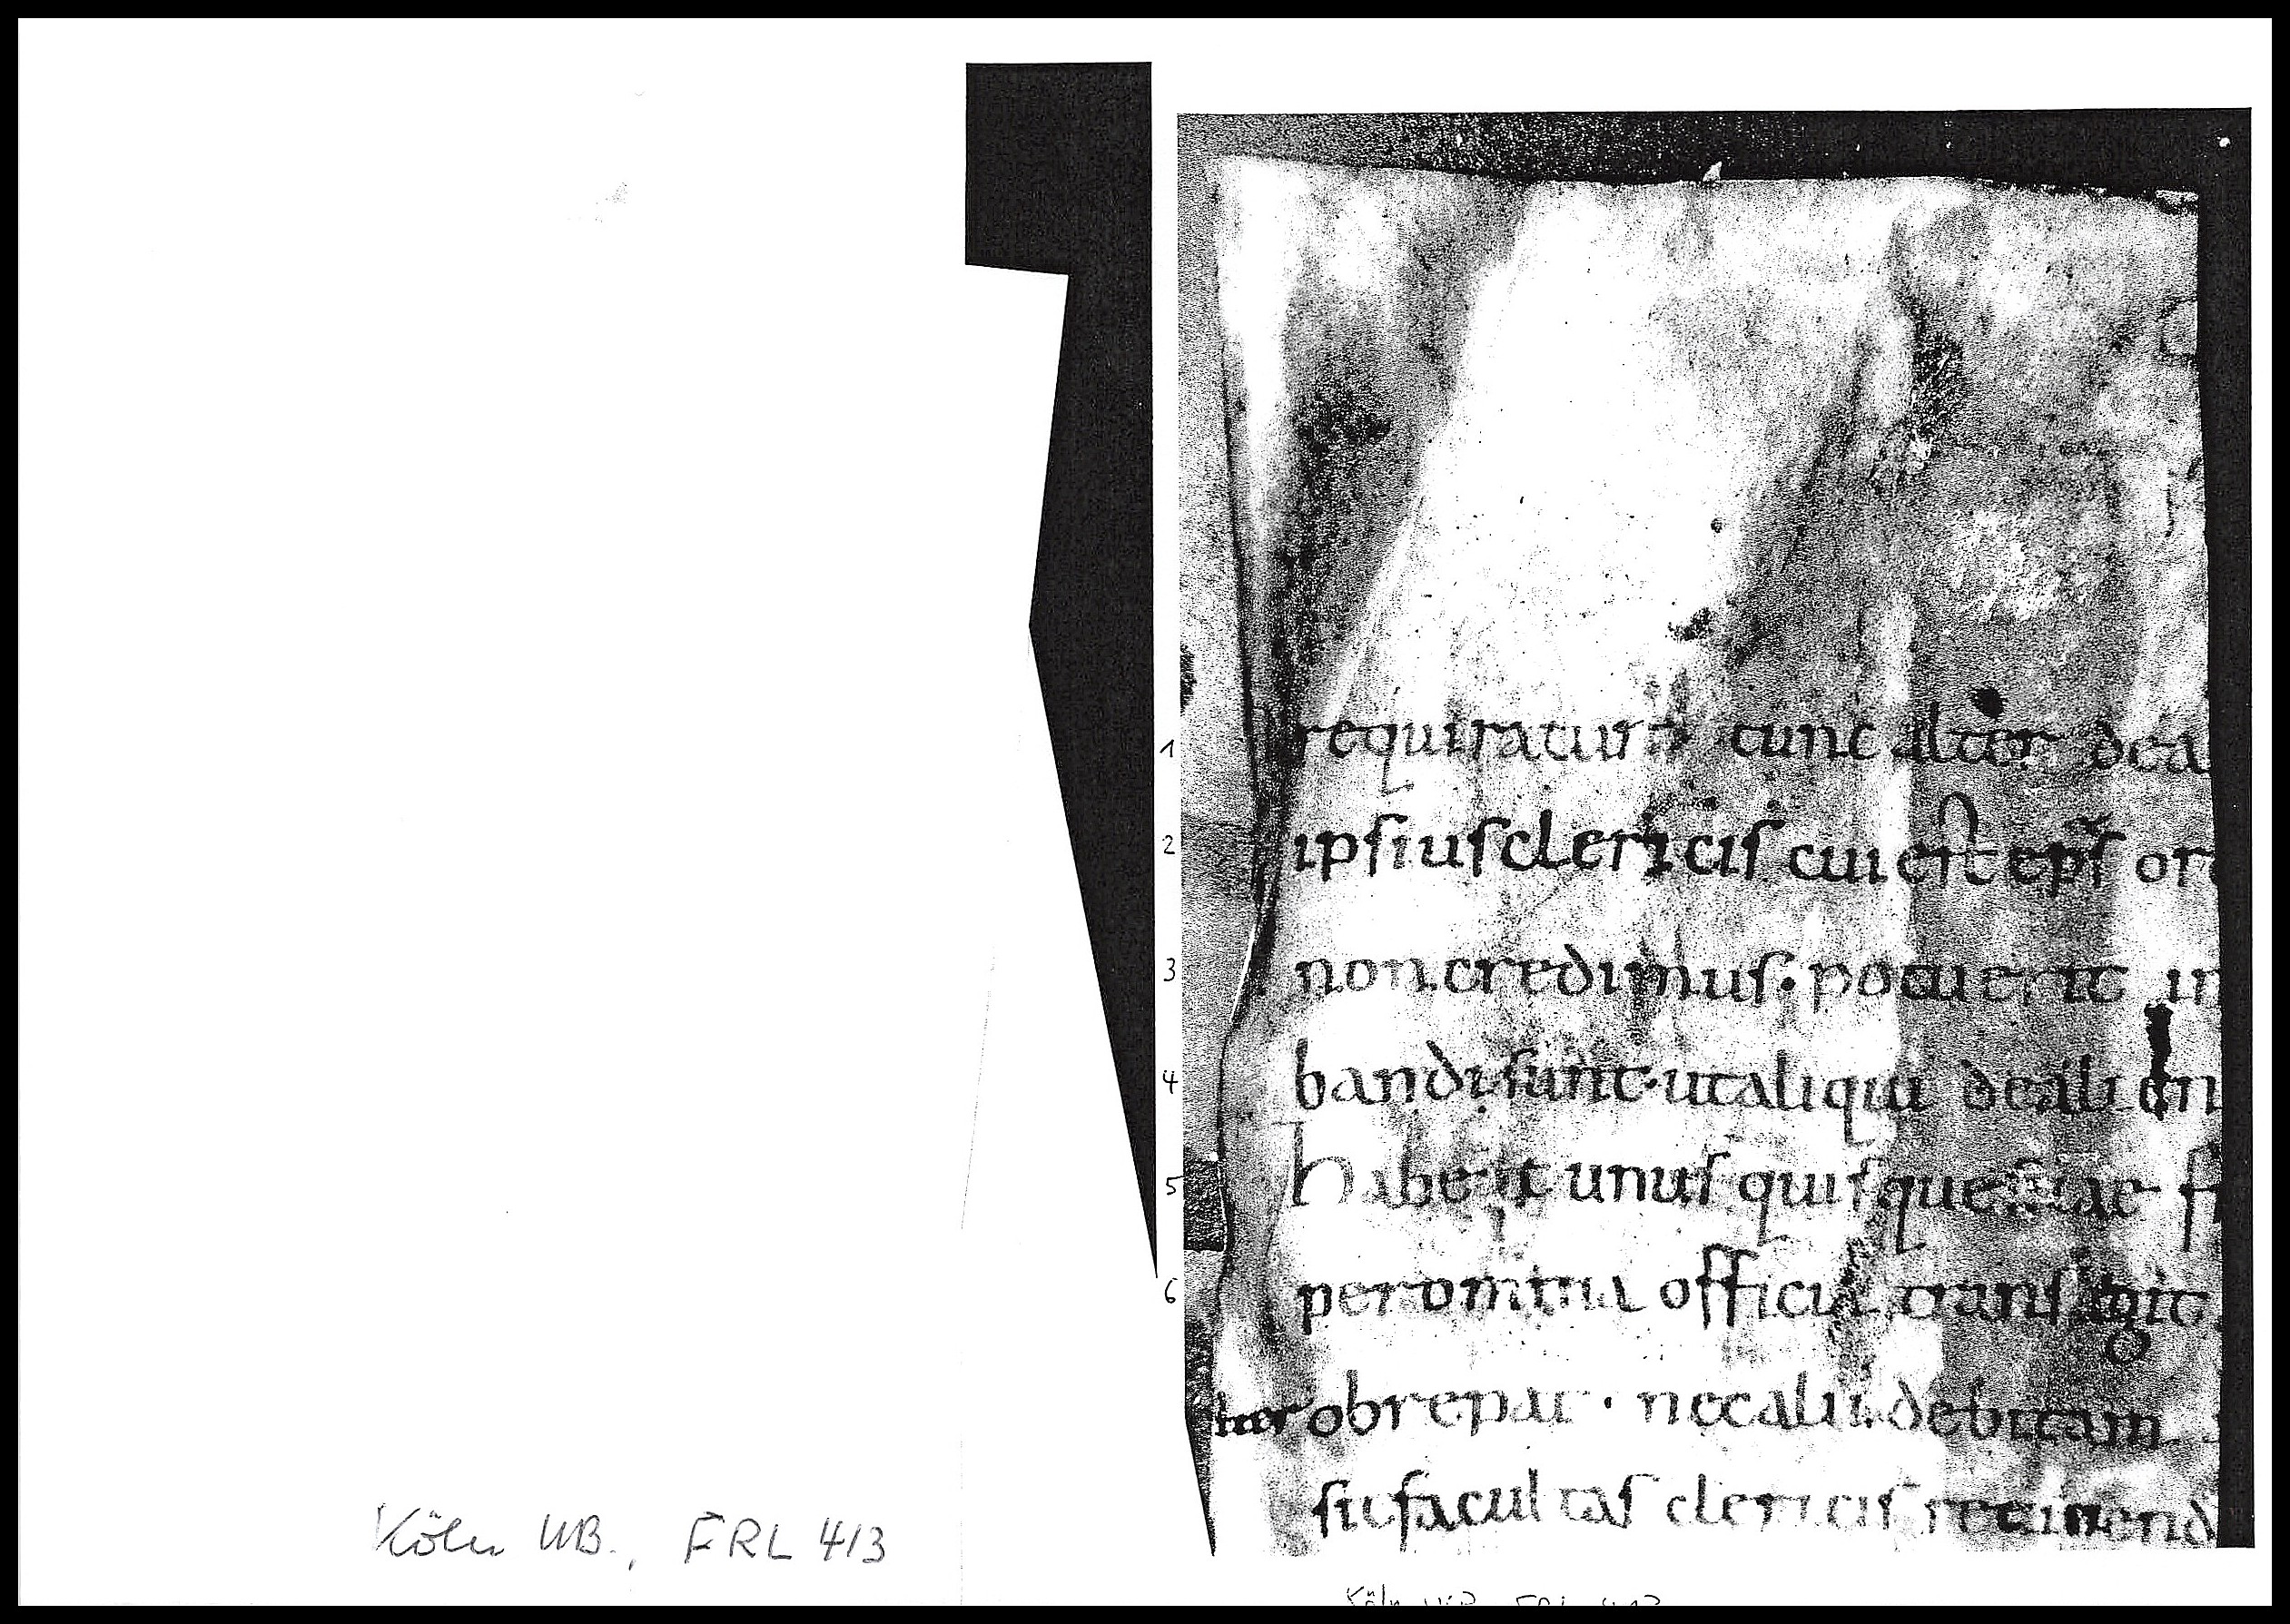 requiratur tunc alter dea
ipsius clericis cui est eps or
non credimus. potuerit in
bandi sunt. ut aliqui de alien
habeat unus quisque suae f
per omnia officia transigit
obrepat . nec alii debitam
sit facultas clericis retinend
1
2
3
4
5
6
Köln UB., FRL 413